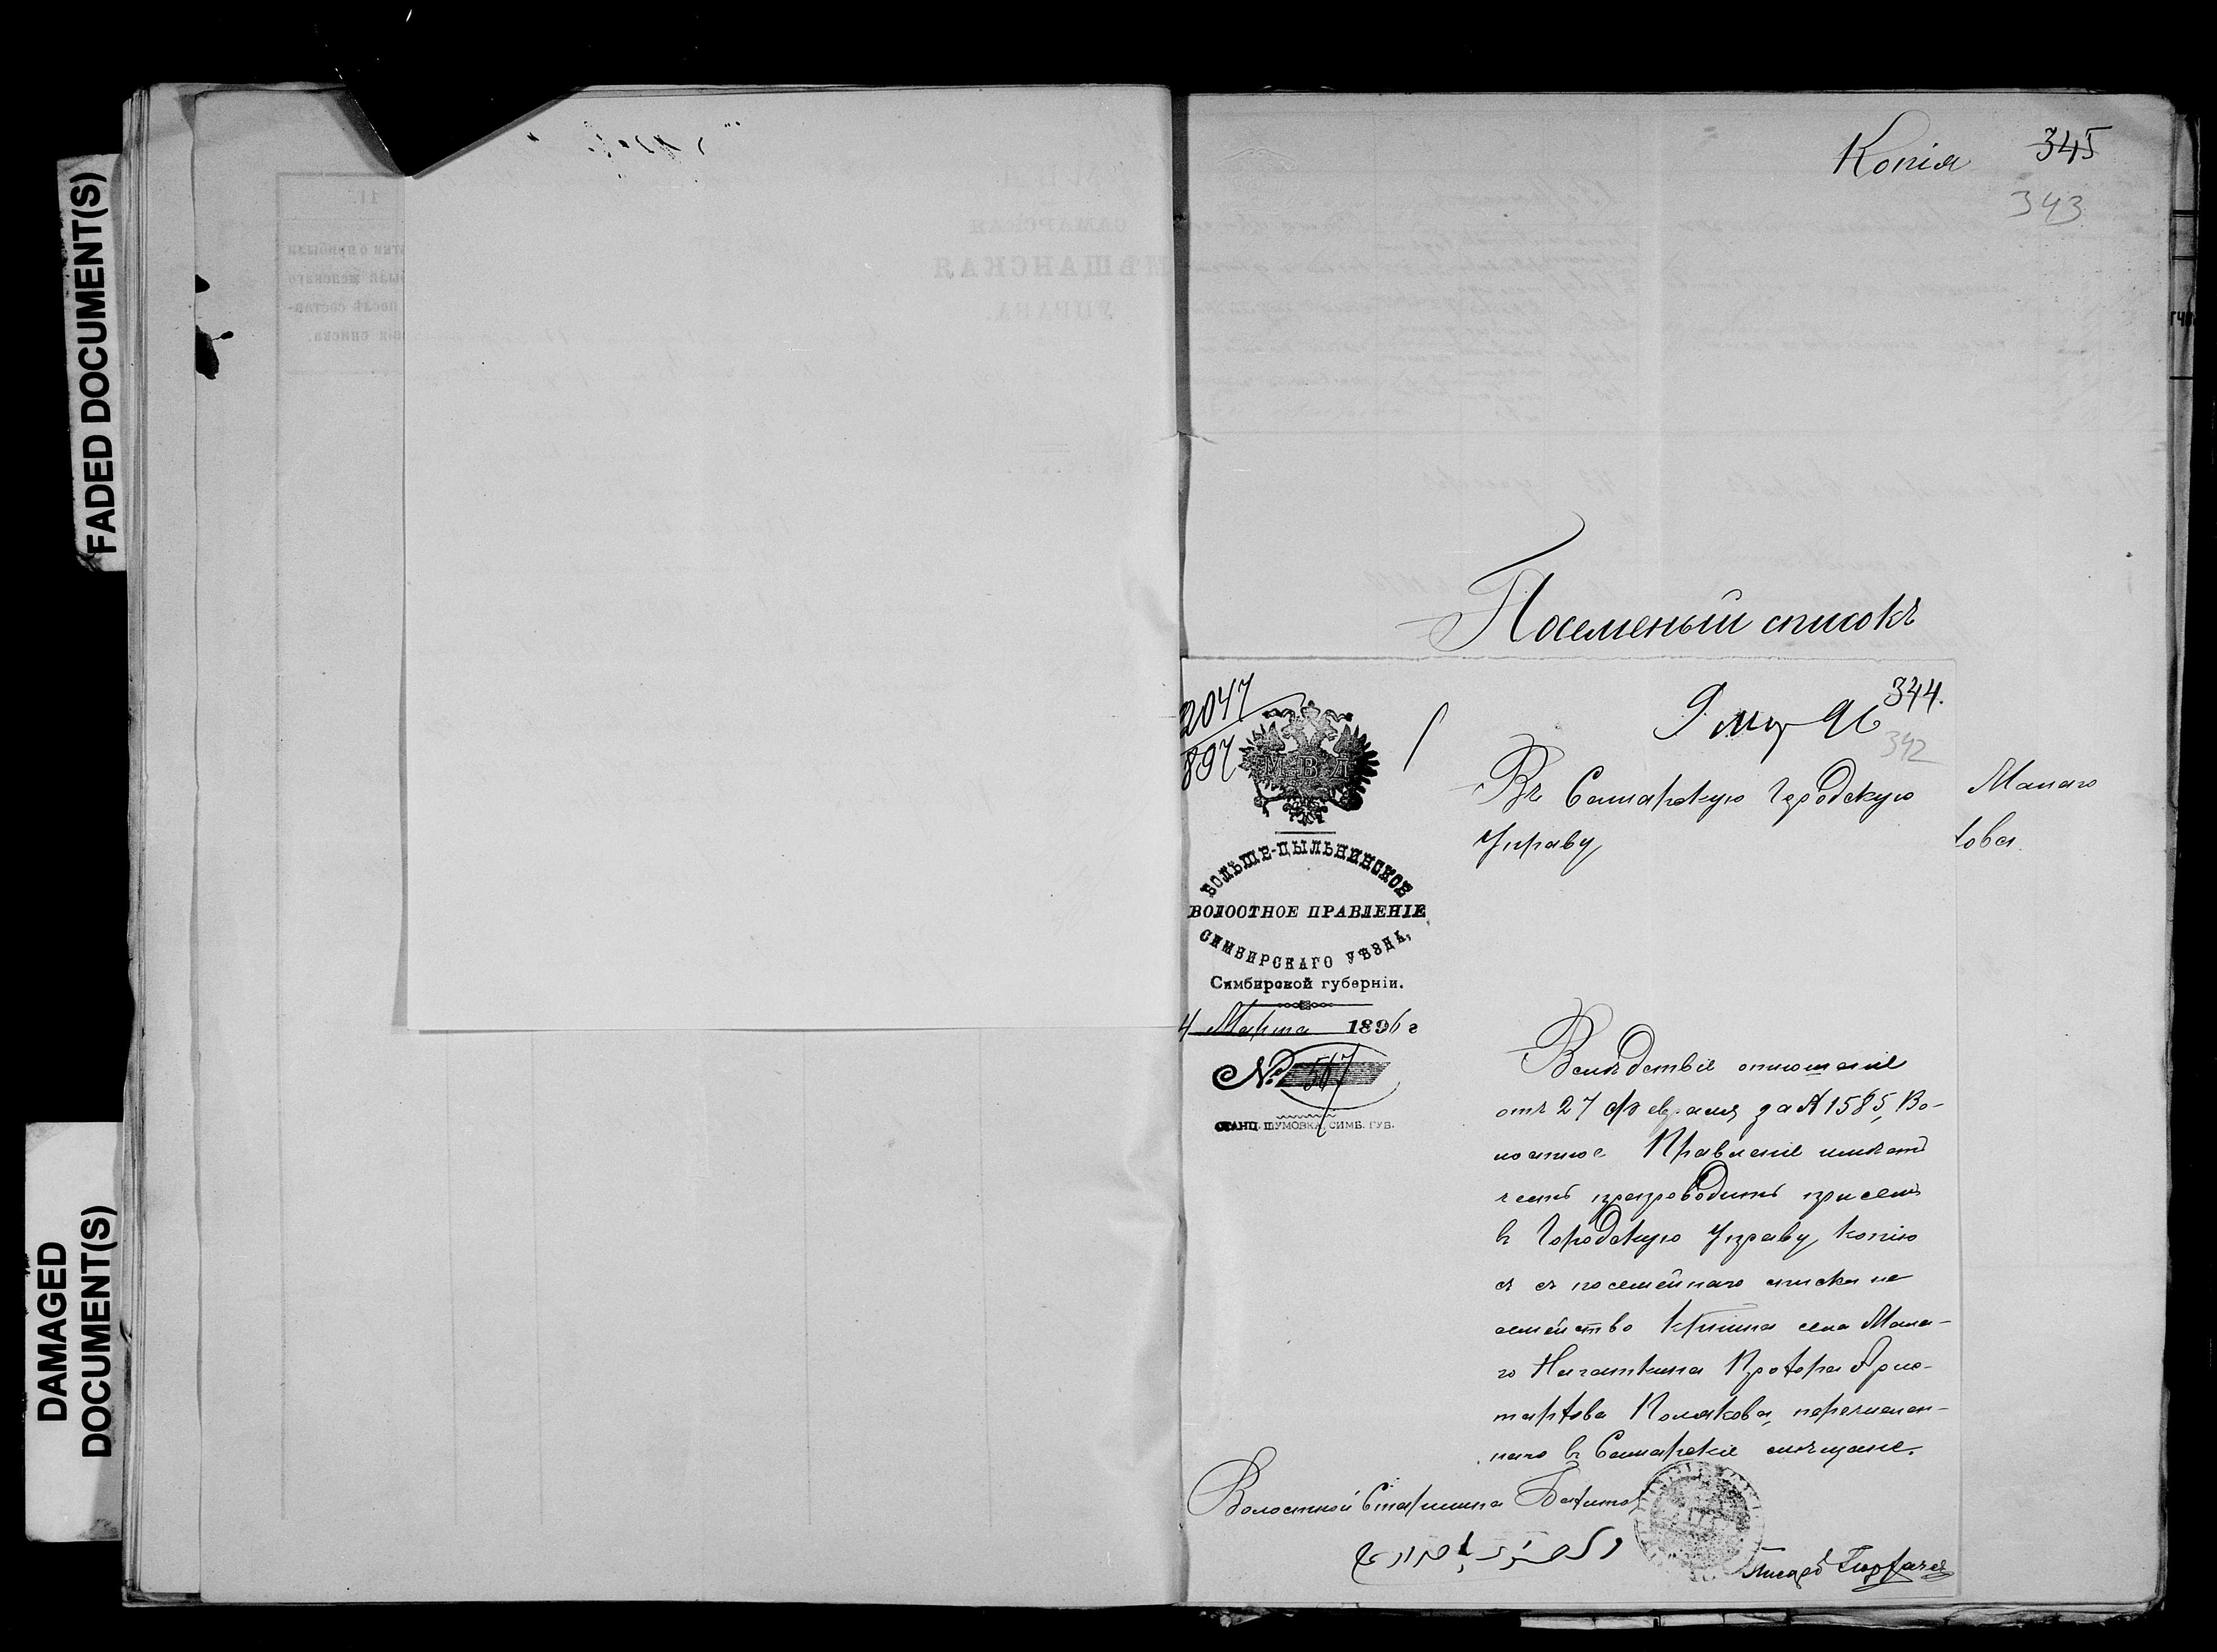 FADED DOCUMENT(S)
DAMAGED
DOCUMENT(S)
Копія 345
343
Посеменый списокъ
344.
342
2047
897
М В Д
БОЛЬШЕ-ЦЫЛЬНИНСКОЕ
ВОЛОСТНОЕ ПРАВЛЕНІЕ
СИМБИРСКАГО УѢЗДА,
Симбирской губерніи.
4 Марта 1896 г
№ 517
СТАНЦ. ШУМОВКА, СИМБ. ГУБ.
9 мр 96
Въ Самарскую Городскую
Управу
Малаго
кова
Вслѣдствіе отношеніе
отъ 27 Февраля за № 1585, Во-
лостное Правленіе имѣетъ
честь препроводить при семъ
въ Городскую Управу, копію
съ посемейнаго списка на
семейство Кр̃нина села Мала-
го Нагаткина Прохора Арис-
тархова Полякова, перечислен-
наго въ Самарскіе мѣщане.
Волостной Старшина
Писарь